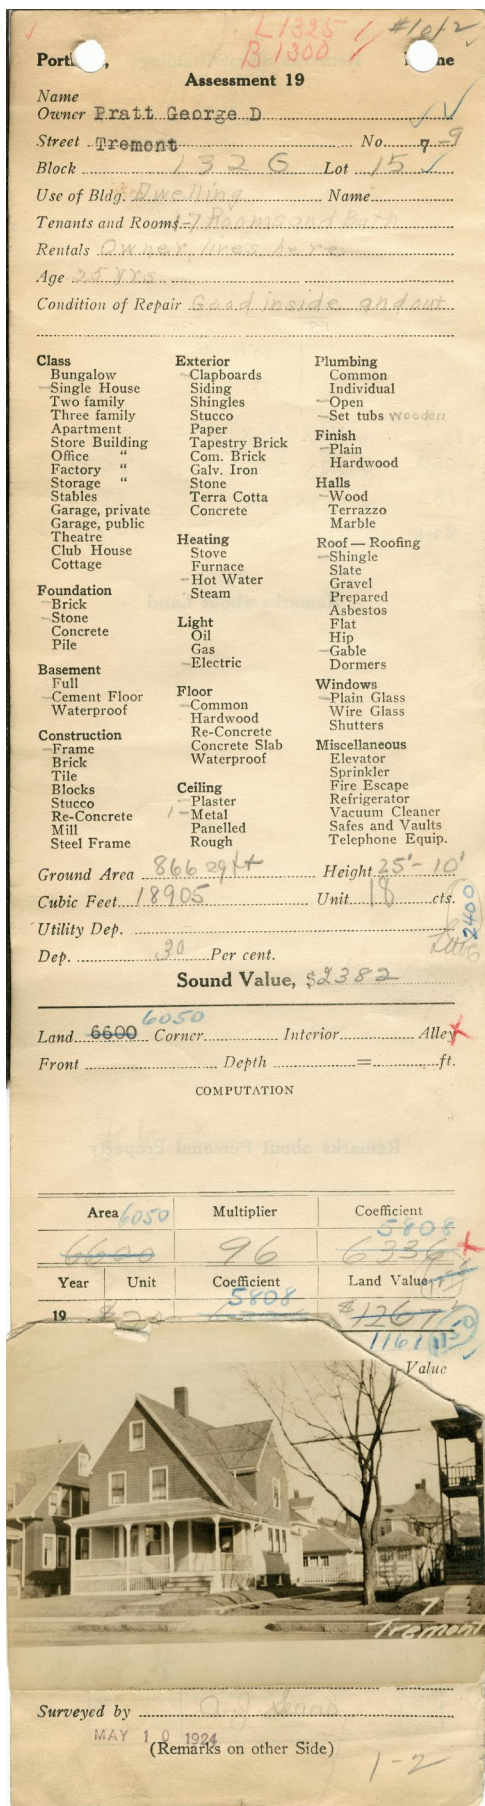 L 1325 / #1 of 2
B 1300 /
Portl , ne
Assessment 19
Name
Owner Pratt George D
Street Tremont No. 7-9
Block 132 G Lot 15
Use of Bldg. Dwelling Name
Tenants and Rooms 1-7 Rooms and Bath
Rentals Owner lives here
Age 25 yrs
Condition of Repair Good inside and out
Class
Bungalow
Single House
Two family
Three family
Apartment
Store Building
Office "
Factory "
Storage "
Stables
Garage, private
Garage, public
Theatre
Club House
Cottage
Foundation
Brick
Stone
Concrete
Pile
Basement
Full
Cement Floor
Waterproof
Construction
Frame
Brick
Tile
Blocks
Stucco
Re-Concrete
Mill
Steel Frame
Exterior
Clapboards
Siding
Shingles
Stucco
Paper
Tapestry Brick
Com. Brick
Galv. Iron
Stone
Terra Cotta
Concrete
Heating
Stove
Furnace
Hot Water
Steam
Light
Oil
Gas
Electric
Floor
Common
Hardwood
Re-Concrete
Concrete Slab
Waterproof
Ceiling
Plaster
1 - Metal
Panelled
Rough
Plumbing
Common
Individual
Open
Set tubs wooden
Finish
Plain
Hardwood
Halls
Wood
Terrazzo
Marble
Roof — Roofing
Shingle
Slate
Gravel
Prepared
Asbestos
Flat
Hip
Gable
Dormers
Windows
Plain Glass
Wire Glass
Shutters
Miscellaneous
Elevator
Sprinkler
Fire Escape
Refrigerator
Vacuum Cleaner
Safes and Vaults
Telephone Equip.
Ground Area 866 sq ft Height 25'-10'
Cubic Feet 18905 Unit 18 cts.
2400
Utility Dep.
Dep. 30 Per cent.
Sound Value, $2382
6050
Land 6600 Corner Interior Alley
Front Depth = ft.
COMPUTATION
Area 6050 Multiplier Coefficient
5808
6600 96 6336
Year Unit Coefficient Land Value
5808
19 $20 $1267
1161
Value
7
Tremont
Surveyed by
MAY 10 1924
(Remarks on other Side)
1-2